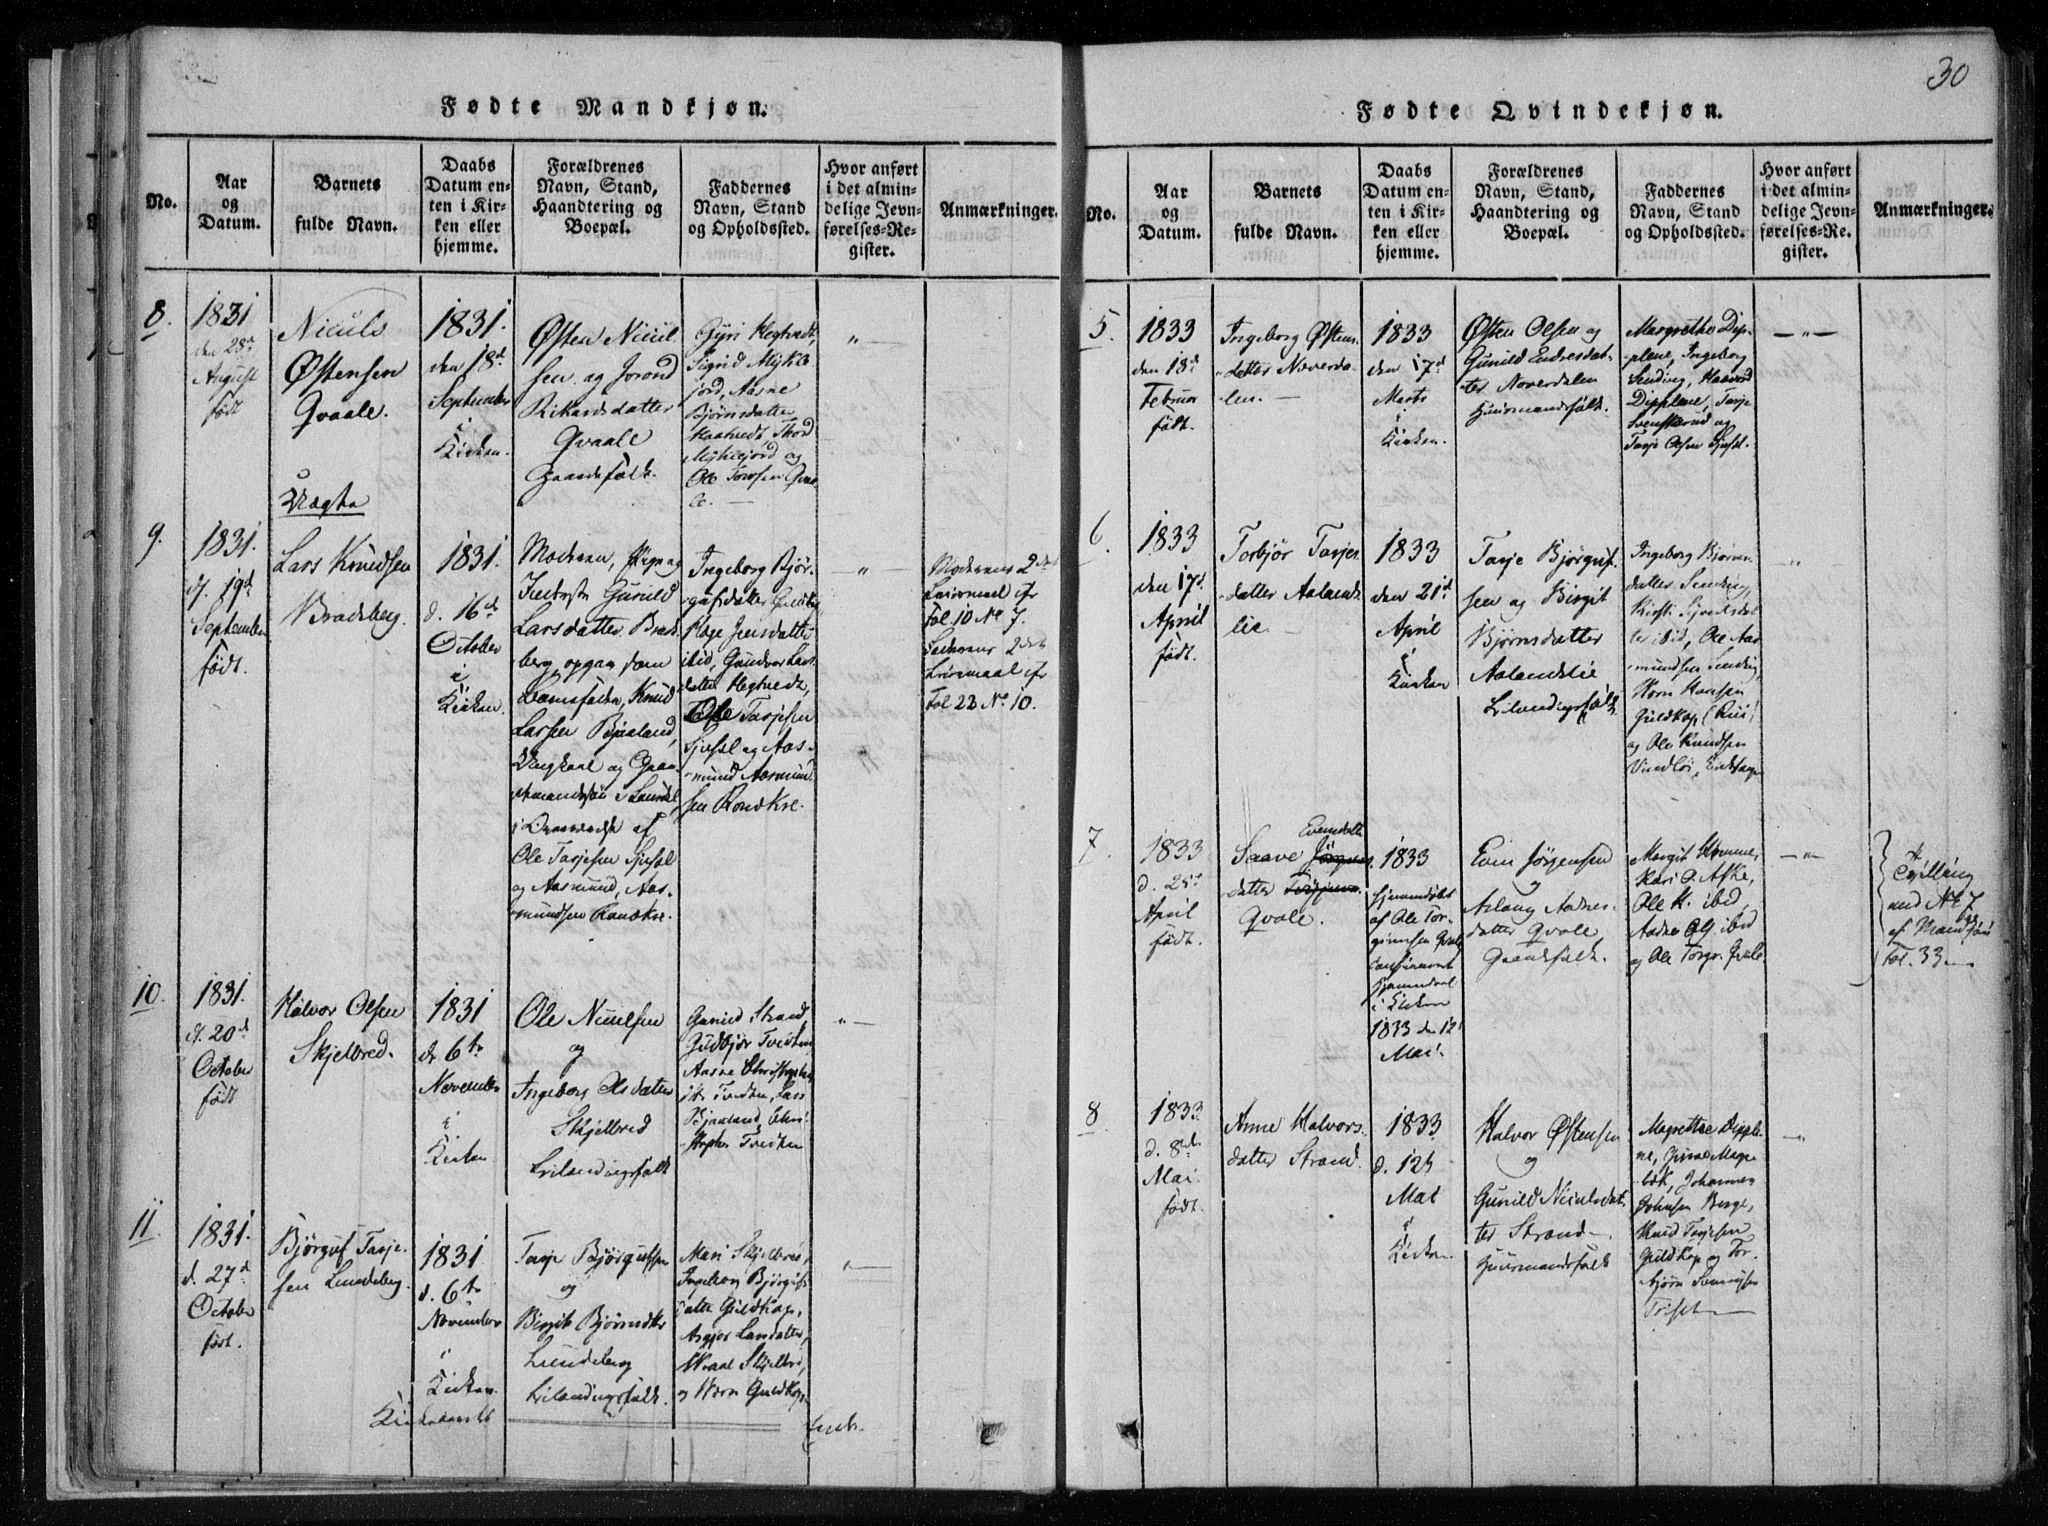 30
Fødte Mandkjøn.
No.
Aar
og
Datum.
Barnets
fulde Navn.
Daabs
Datum en-
ten i Kir-
ken eller
hjemme.
Forældrenes
Navn, Stand,
Haandtering og
Boepæl.
Faddernes
Navn, Stand
og Opholdssted.
Hvor anført
i det almin-
delige Jevn-
førelses-Re-
gister.
Anmærkninger.
8.
1831
den 28de
August
født
Niculs
Østensen
Qvaale.
1831.
den 18d
September
i
Kirken.
Østen Nicul
sen og Jorond
Rikardsdatter
Qvaale
Gaardsfolk.
Gyri Hegtvedt,
Sigrid Mykle
jord, Aasne
Bjørnsdatter
Thord
Myklejord og
Ole
" —
9.
1831.
d. 19d
September
født.
Uægte
Lars Knudsen
Bradsberg.
1831.
d. 16d
October
i
Kirken.
Moderen, Pige og
Gunild
Larsdatter Brads
berg, opgav som
Barnefader, Knud
Larsen Bjaaland,
Ungkarl og Gaar
i
af
Ole Tarjesen
og Aasmund, Aas-
mundsen
Ingeborg Bjør
gufsdatter
Pige Jensdatter
ibid, Gundvor Lars
datter Hegtvedt,
Ole Tarjesen
og Aas-
mund Aasmund
sen
" —
Moderens 2det
Leiermaal cfr
Fol 10 No 7.
Faderens 2det
Leiermaal cfr
Fol 22 No 10.
10.
1831.
d. 20d
October
født
Halvor Olsen
Skjelbred.
1831
d 6te
November
i
Kirken
Ole Niculsen
og
Ingeborg Olsdatter
Skjelbred
Leilændingsfolk
Gunild Strand
Gudbjør Tvedten
Aasne
Tvedten, Lars
Bjaaland,
Tvedten
" —
11.
1831.
d. 27d
October
født.
Bjørguf Tarje-
sen Lundeberg.
1831
d. 6te
November
i
Kirken.
Tarje Bjørgufsen
og
Birgit Bjørnsdtr
Lundeberg
Leilændingsfolk.
Mari Skjelbred,
Ingeborg Bjørgufs
datter Guldkop,
Larsdatter,
Skjelbred,
og Guldkop.
" —
Fødte Qvindekjøn.
No.
Aar
og
Datum.
Barnets
fulde Navn.
Daabs
Datum en-
ten i Kir-
ken eller
hjemme.
Forældrenes
Navn, Stand,
Haandtering og
Boepæl.
Faddernes
Navn, Stand
og Opholdssted.
Hvor anført
i det almin-
delige Jevn-
førelses-Re-
gister.
Anmærkninger.
5.
1833
den 18d
Februar
født.
Ingeborg Østens-
datter Noverda-
len. —
1833
den 17d
Marts
i
Kirken.
Østen Olsen og
Gunild Endresdat-
ter Noverdalen
Huusmandsfolk.
Margrethe Dip-
plane, Ingeborg
Sending, Haavord
Dipplane, Tarje
og
Tarje Olsen
— " —
6.
1833
den 17d
April
født.
Torbjør Tarjes-
datter Aalands-
lie. —
1833
den 21d
April
i
Kirken
Tarje Bjørguf-
sen og Birgit
Bjørnsdatter
Aalandslie
Leilændingsfolk
Ingeborg Bjørns-
datter Sending,
Kirsti
ter ibid, Ole Aas-
mundsen Sending
Hansen
Guldkop
og Ole Knudsen
" —
7.
1833
d. 25d
April
født.
Evensdatt
Saave
datter
Qvale.
1833
hjemmedøbt
af Ole Tor-
grimsen Qvale
i Kirken
1833 den 12te
Mai.
Even Jørgensen
og
Aslaug Aadnes-
datter Qvale
Gaardsfolk.
Margit
Kari O. Aske,
Ole H. ibid
Aadne Olj ibid
og Ole Torgr. Qvale
— " —
Tvilling
med No 7
af Mandkjøn
Fol. 33
8
1833.
d. 8de
Mai.
født.
Anne Halvors-
datter Strand.
1833
d. 12te
Mai
i
Kirken
Halvor Østensen
og
Gunild Niculsdat
ter Strand
Huusmandsfolk
Magrethe Dippla-
ne,
Johannes
Johnsen Berge,
Knud Tarjesen
Guldkop og Tor-
bjørn
" —